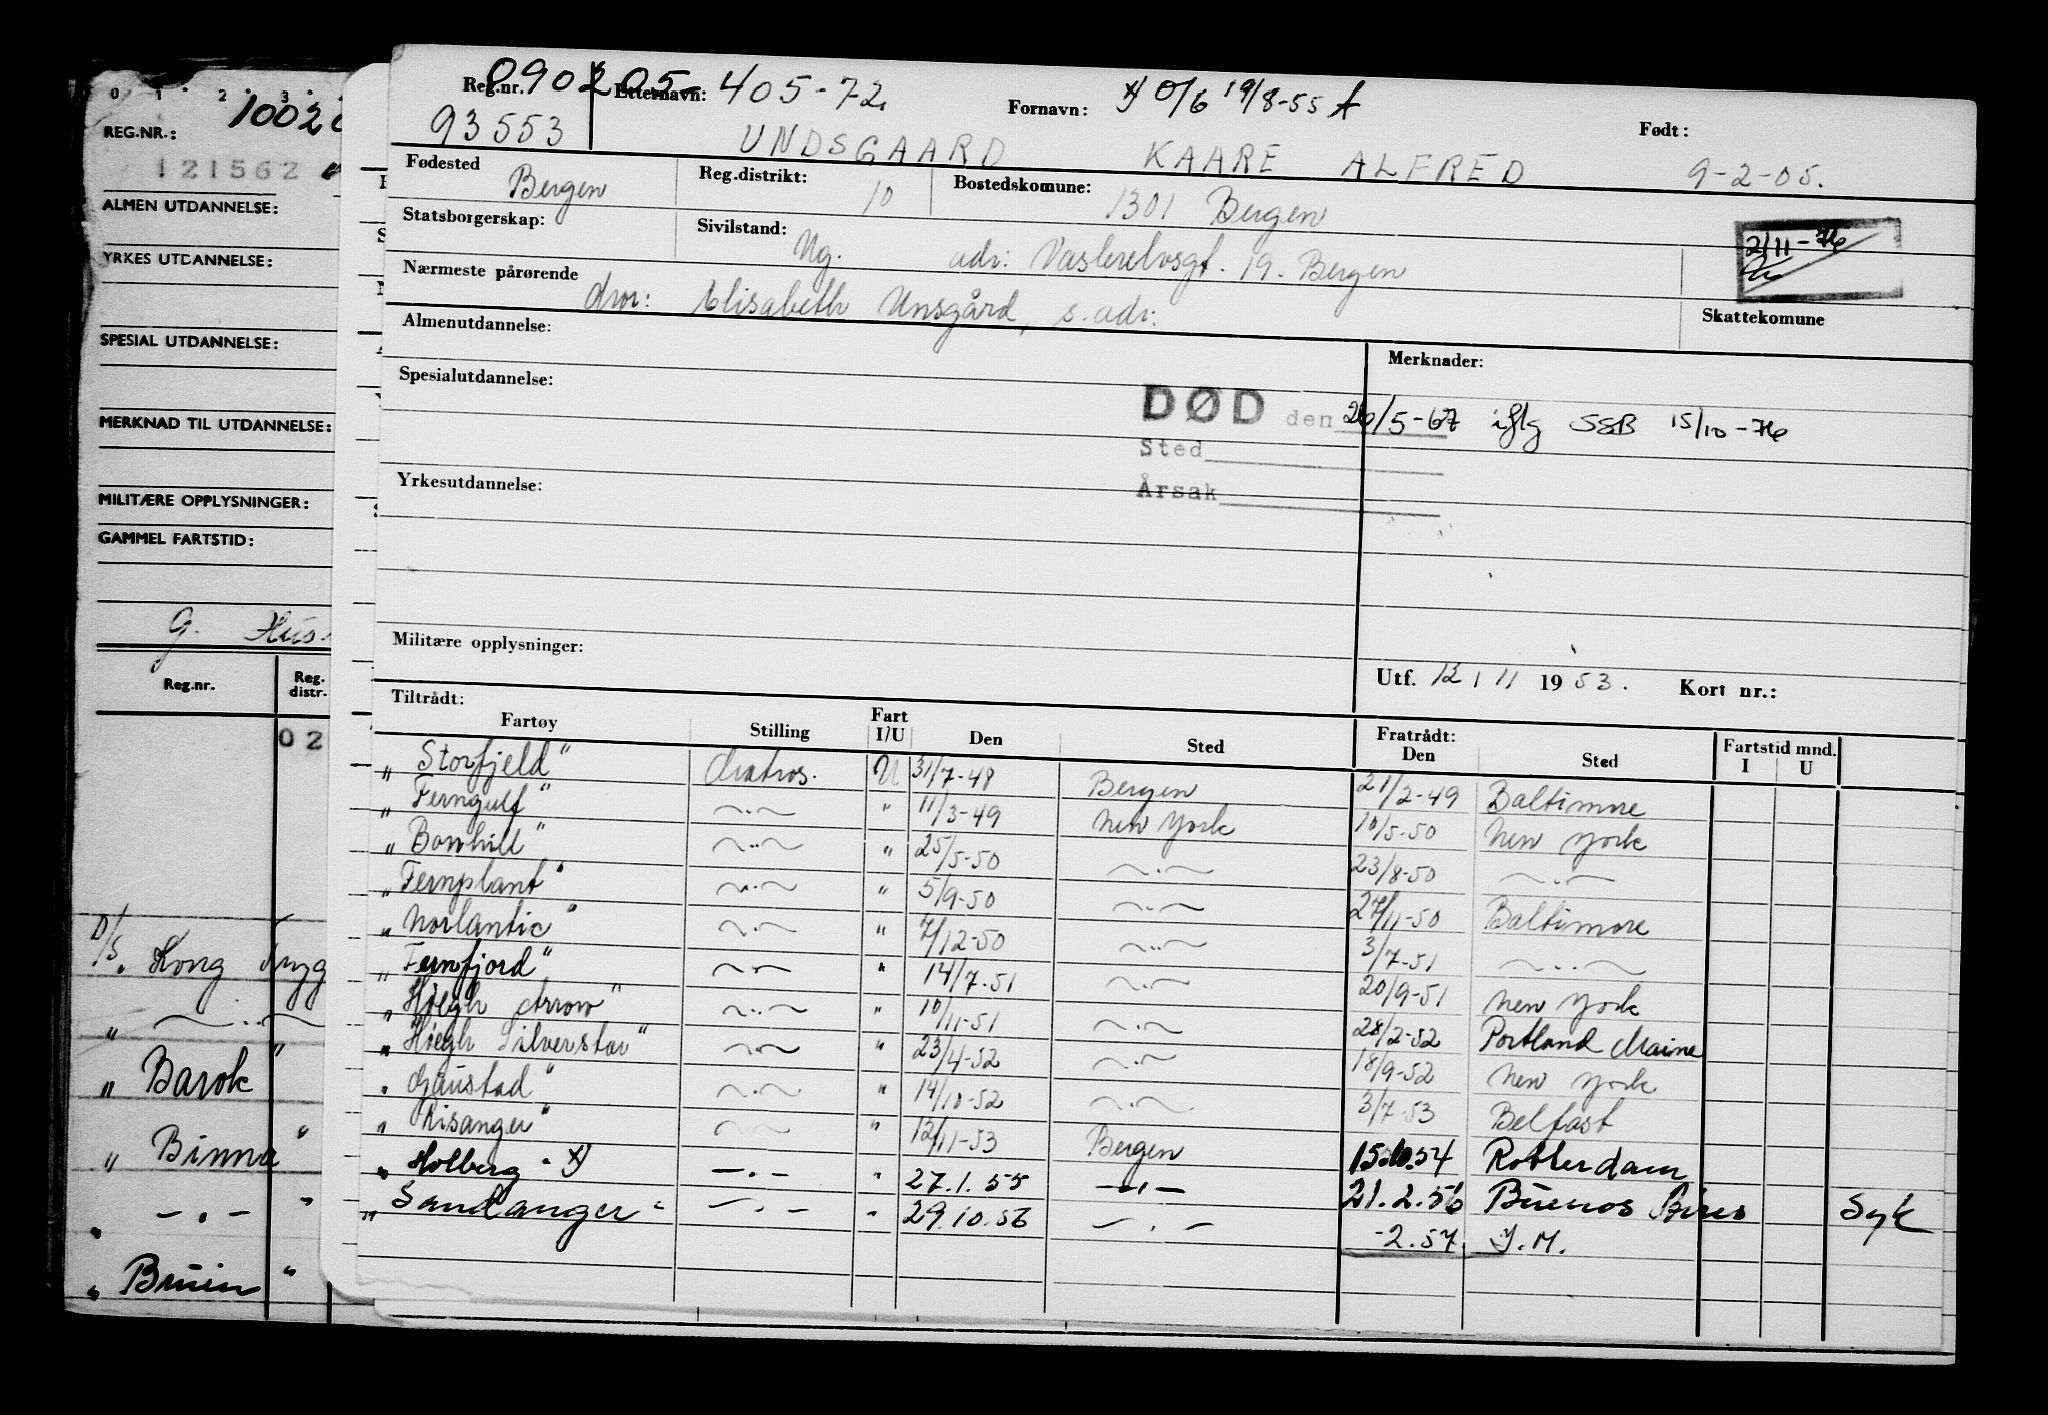 0 1 2 3
1002
REG.NR.:
121562
ALMEN UTDANNELSE:
YRKES UTDANNELSE:
SPESIAL UTDANNELSE:
MERKNAD TIL UTDANNELSE:
MILITÆRE OPPLYSNINGER:
GAMMEL FARTSTID:
G. Hus
Reg.nr. Reg. distr.
02
D/S. Kong
" —..—
" Barok "
" Binna "
" —.— "
" Bruin "
Reg.nr. 090205- Etternavn: 405-72 Fornavn: x) 0/6 19/8-55 A Født:
93553 UNDSGAARD KAARE ALFRED 9-2-05.
Fødested Bergen Reg.distrikt: 10 Bostedskomune: 1301 Bergen
Statsborgerskap: Sivilstand: Ug. adr: 19. Bergen 2/11-76
Nærmeste pårørende mor: Elisabeth Unsgård, s. adr. Skattekomune
Almenutdannelse: Merknader:
Spesialutdannelse: DØD den 26/5-67 iflg SSB 15/10-76
Sted
Yrkesutdannelse: Årsak
Militære opplysninger: Utf. 12/11 1953. Kort nr.:
Tiltrådt: Fratrådt: Fartstid mnd.
Fartøy Stilling Fart I/U Den Sted Den Sted I U
" Storfjeld" Matros. U 31/7-48 Bergen 21/2-49 Baltimore
" Ferngulf" —..— " 11/3-49 New York 10/5-50 New York
" Bowhill" —..— " 25/5-50 —..— 23/8-50 —..—
" Fernplant" —..— " 5/9-50 —..— 27/11-50 Baltimore
" Norlantic" —..— " 7/12-50 —..— 3/7-51 —..—
" Fernfjord" —..— " 14/7-51 —..— 20/9-51 New York
" Høegh Arrow" —..— " 10/11-51 —..— 28/2-52 Portland Maine
" Høegh Silverstar" —..— " 23/4-52 —..— 18/9-52 New York
" Gaustad" —..— " 14/10-52 —..— 3/7-53 Belfast
" Risanger" —..— " 12/11-53 Bergen 15.10.54 Rotterdam
" Holberg" x) —.— " 27.1.55 —..— 21.2.56 Buenos Aires Syk
" Sandanger" —.— " 29.10.56 —.— -2.57. J.M.